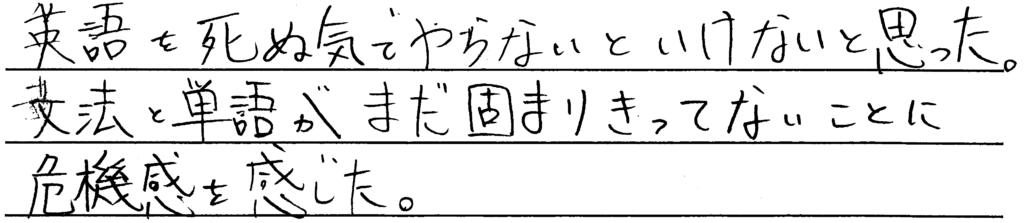 英語を死ぬ気でやらないといけないと思った。
文法と単語がまだ固まりきってないことに
危機感を感じた。